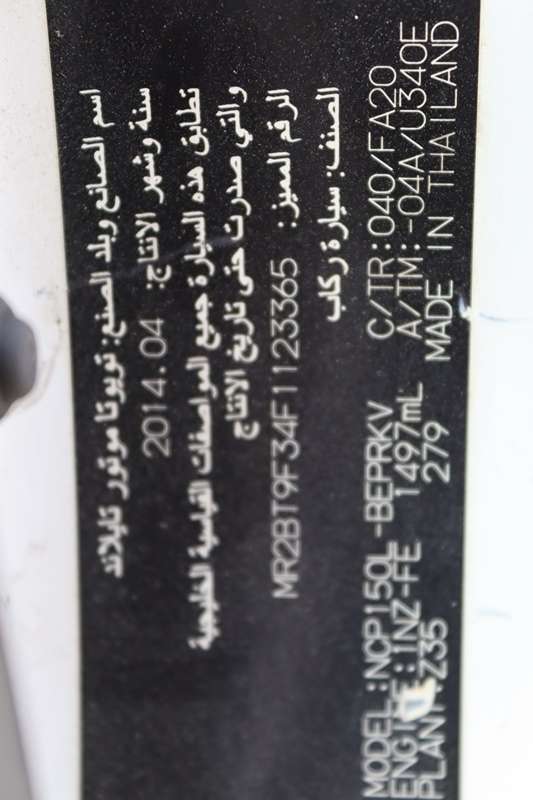 اسم الصانع وبلد الصنع: تويوتا موتور تايلاند
سنة وشهر الانتاج: 2014.04
تطابق هذه السيارة جميع المواصفات القياسية الخليجية
والتي صدرت حتى تاريخ الانتاج
الرقم المميز: MR2BT9F34F1123365
الصنف: سيارة ركاب
MODEL:NCP150L-BEPRKV C/TR:040/FA20
ENGINE:1NZ-FE 1497mL A/TM:-04A/U340E
PLANT:Z35 279 MADE IN THAILAND